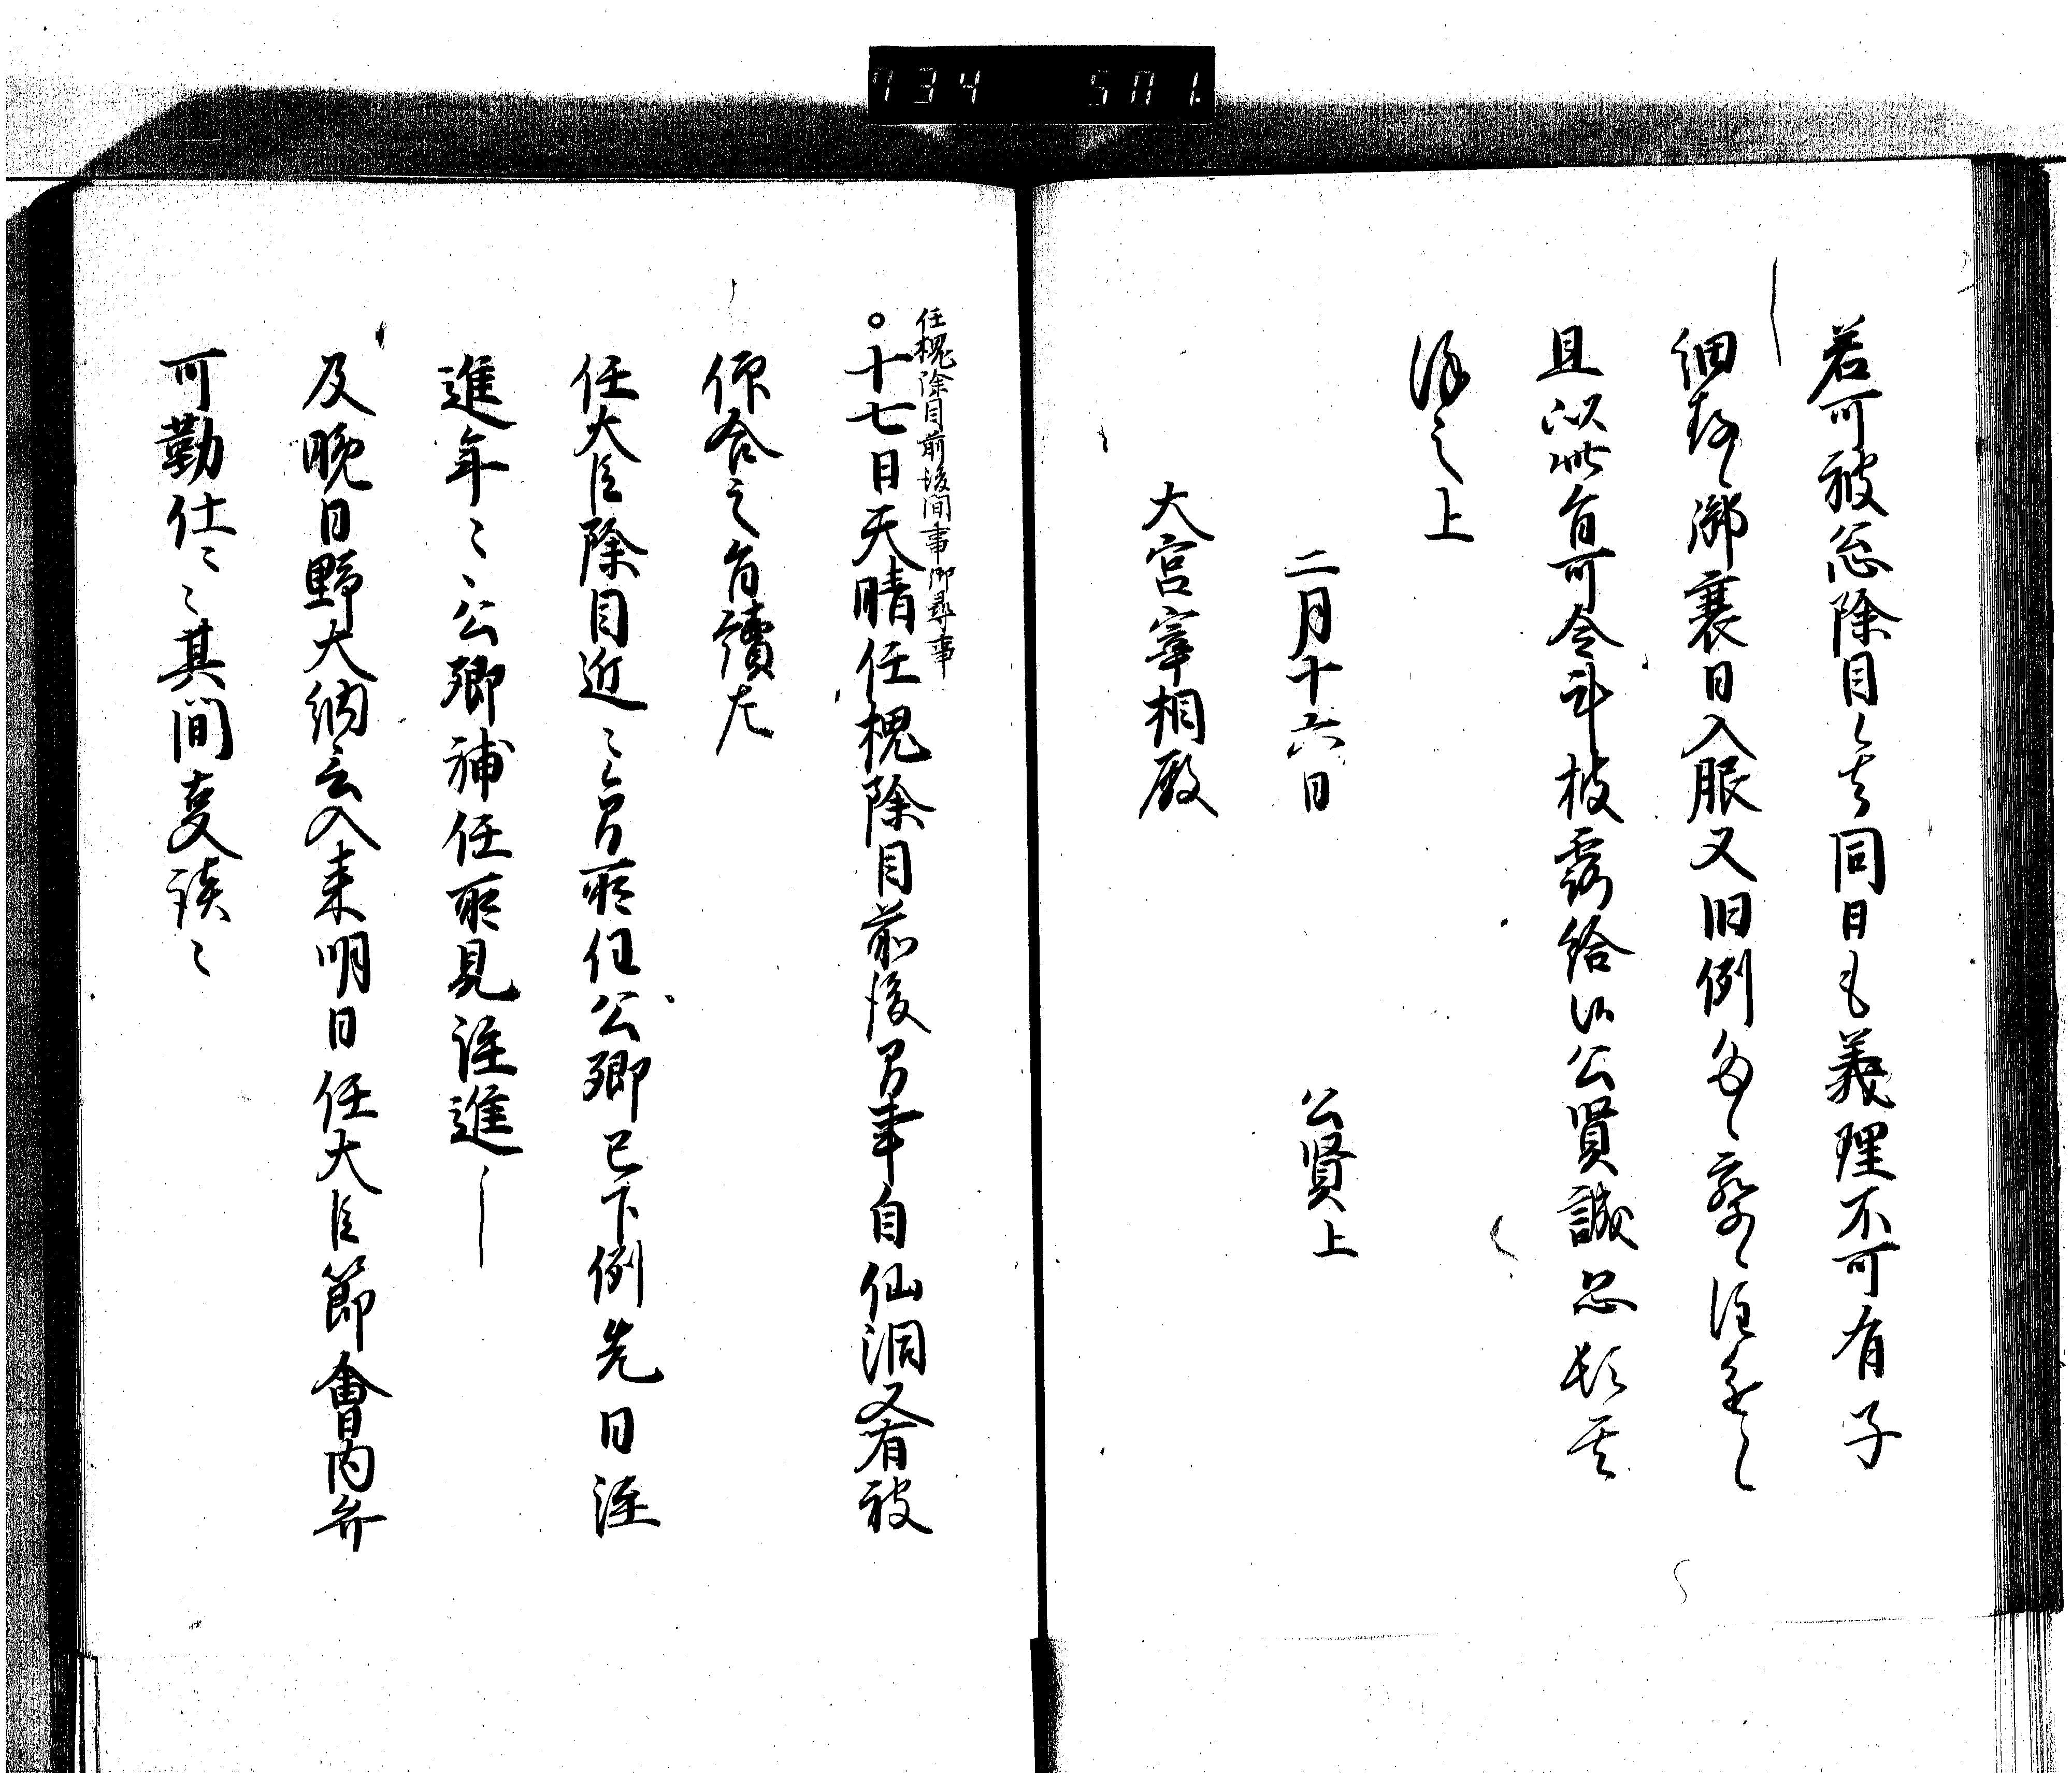 734 501
若可被忩除目候者同日も義理不可有子
細歟邂逅衰日入眼又旧例多候
且以此旨可令計披露給候公賢誠恐頓首
謹言上
二月十六日 公賢上
大宮宰相殿
任槐除目前後間事御尋事
○十七日天晴任槐除目前後間事自仙洞又有被
仰合之旨續左
任大臣除目近々之間所任公卿已下例先日注
進年々公卿補任所見注進
及晚日野大納言入来明日任大臣節會内弁
可勤仕云々其間事談之